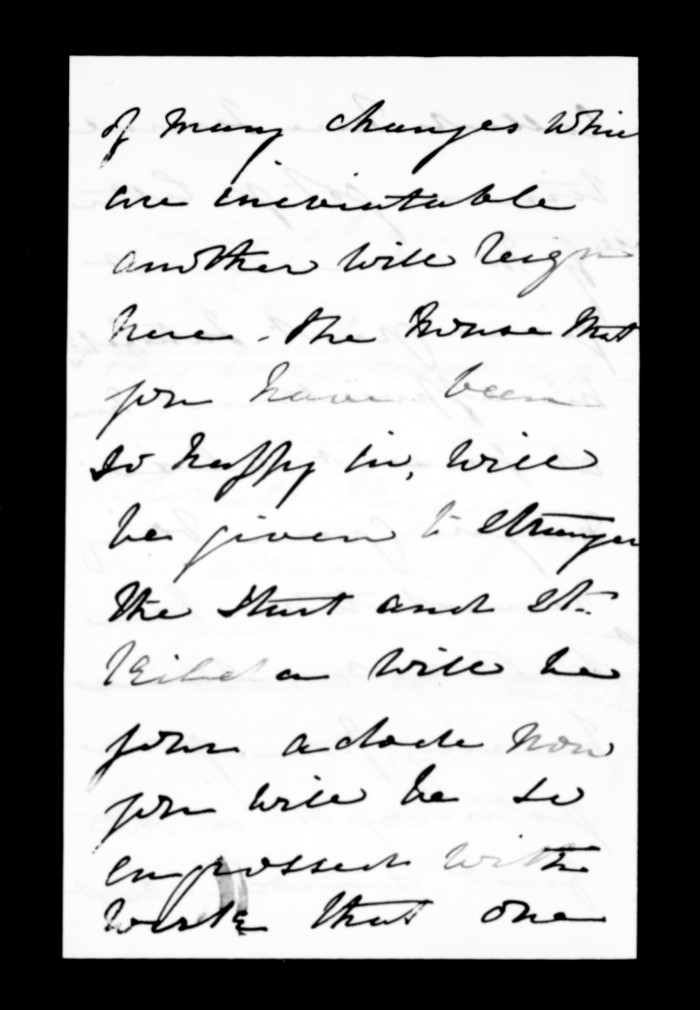 of many changes whic
are ineviatable
another will reign
here - the house that
you have been
so happy in, will
be given to Stranger
the Hut and St.
Kilda will be
your abode now
you will be so
engrossed with
work that one